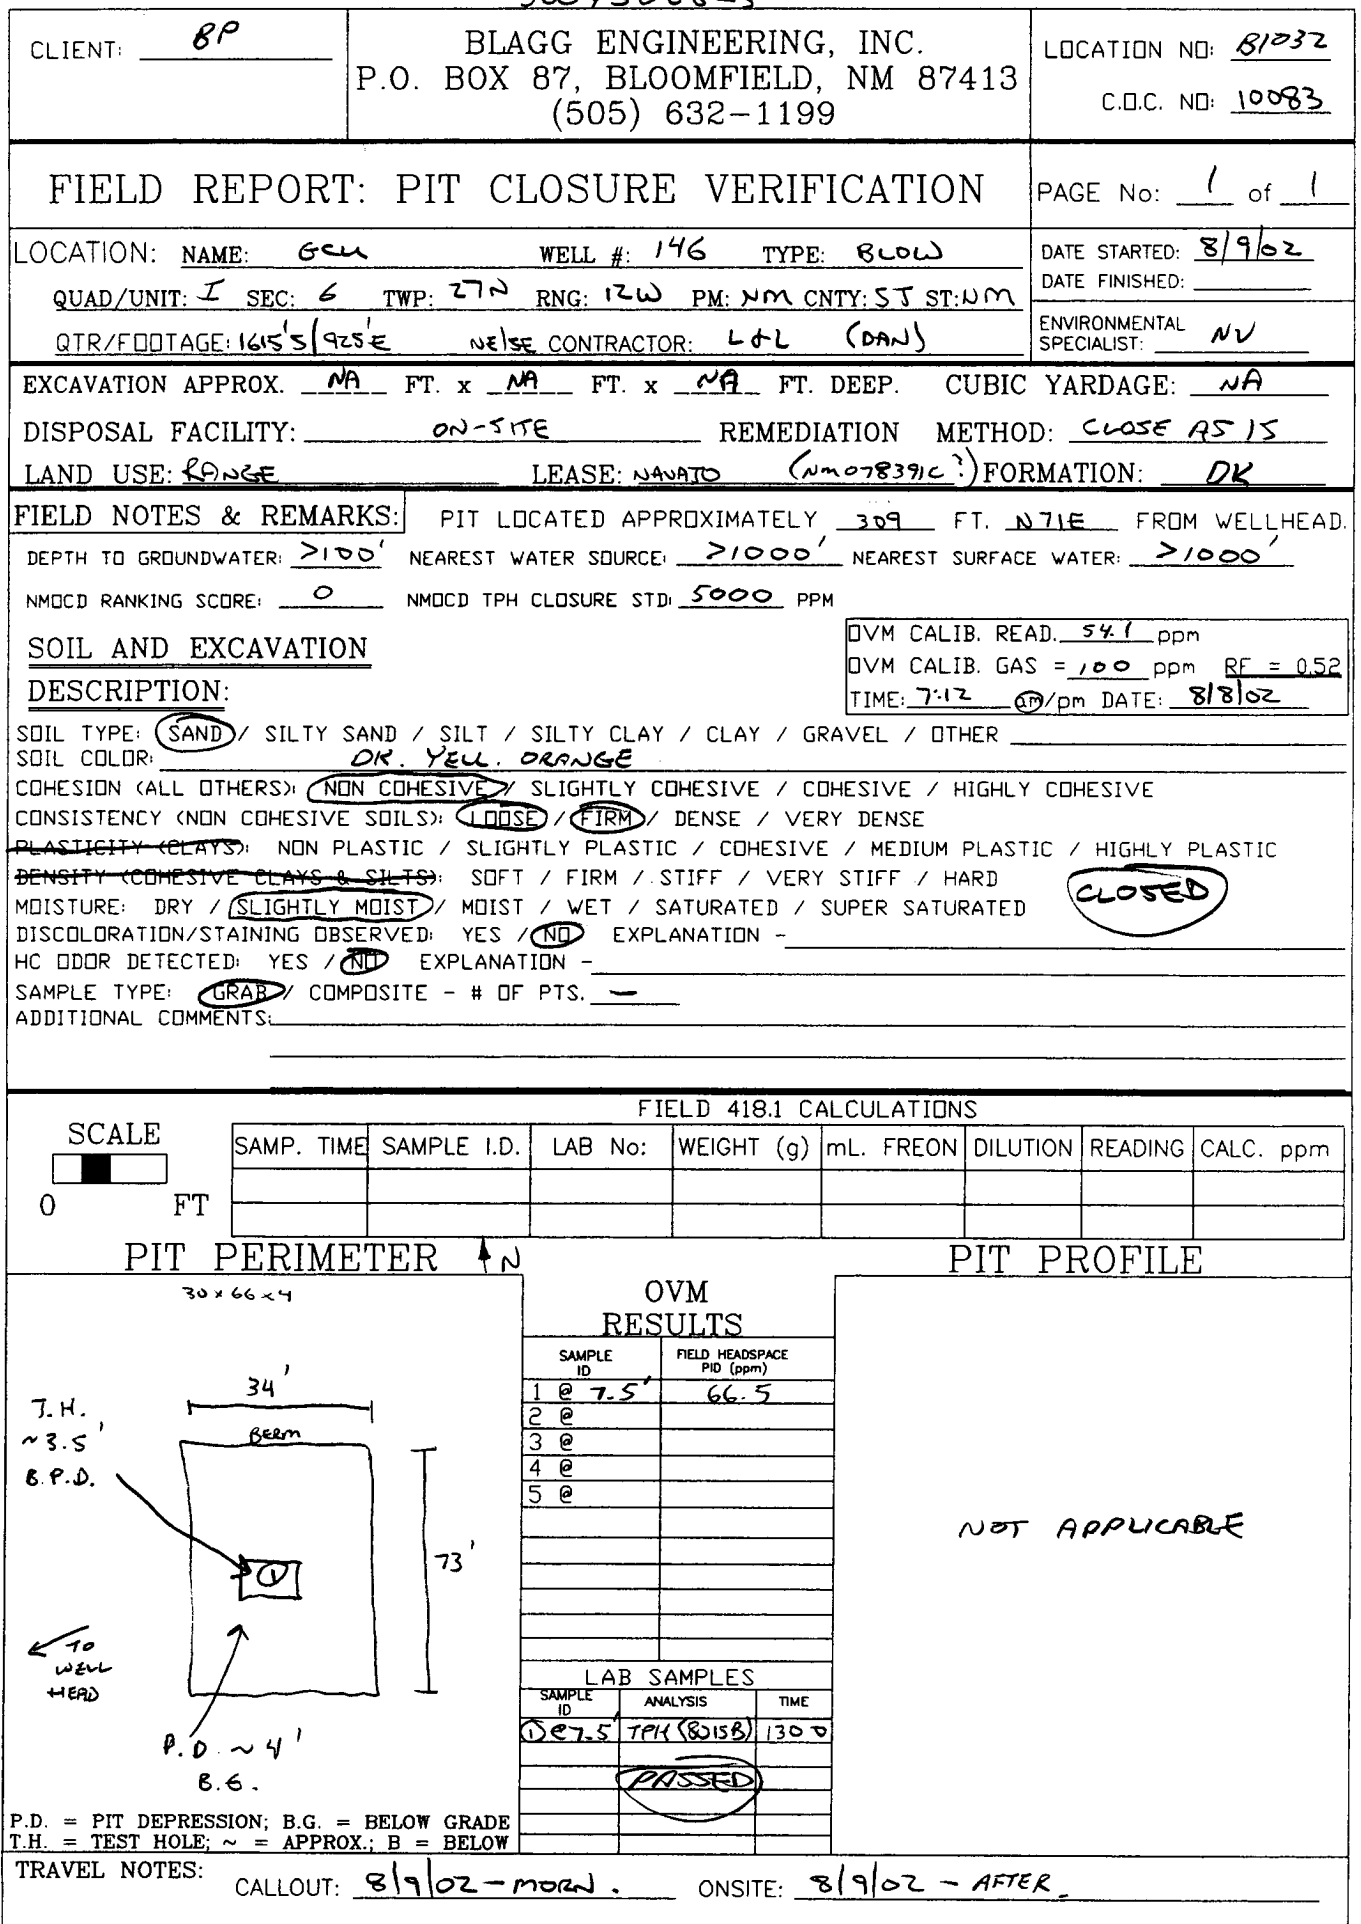 CLIENT: BP
BLAGG ENGINEERING, INC.
P.O. BOX 87, BLOOMFIELD, NM 87413
(505) 632-1199
LOCATION NO: B1032
C.O.C. NO: 10083
FIELD REPORT: PIT CLOSURE VERIFICATION
PAGE No: 1 of 1
LOCATION: NAME: GCU WELL #: 146 TYPE: BLOW
QUAD/UNIT: I SEC: 6 TWP: 27N RNG: 12W PM: NM CNTY: SJ ST: NM
QTR/FOOTAGE: 1615'S/925'E NE/SE CONTRACTOR: L&L (DAN)
DATE STARTED: 8/9/02
DATE FINISHED:
ENVIRONMENTAL SPECIALIST: NV
EXCAVATION APPROX. NA FT. x NA FT. x NA FT. DEEP. CUBIC YARDAGE: NA
DISPOSAL FACILITY: ON-SITE REMEDIATION METHOD: CLOSE AS IS
LAND USE: RANGE LEASE: NAVAJO (NM078391C?) FORMATION: DK
FIELD NOTES & REMARKS: PIT LOCATED APPROXIMATELY 309 FT. N71E FROM WELLHEAD.
DEPTH TO GROUNDWATER: >100' NEAREST WATER SOURCE: >1000' NEAREST SURFACE WATER: >1000'
NMOCD RANKING SCORE: 0 NMOCD TPH CLOSURE STD: 5000 PPM
SOIL AND EXCAVATION
DESCRIPTION:
OVM CALIB. READ. 54.1 ppm
OVM CALIB. GAS = 100 ppm RF = 0.52
TIME: 7:12 am/pm DATE: 8/8/02
SOIL TYPE: SAND / SILTY SAND / SILT / SILTY CLAY / CLAY / GRAVEL / OTHER
SOIL COLOR: DK. YELL. ORANGE
COHESION (ALL OTHERS): NON COHESIVE / SLIGHTLY COHESIVE / COHESIVE / HIGHLY COHESIVE
CONSISTENCY (NON COHESIVE SOILS): LOOSE / FIRM / DENSE / VERY DENSE
PLASTICITY (CLAYS): NON PLASTIC / SLIGHTLY PLASTIC / COHESIVE / MEDIUM PLASTIC / HIGHLY PLASTIC
DENSITY (COHESIVE CLAYS & SILTS): SOFT / FIRM / STIFF / VERY STIFF / HARD
CLOSED
MOISTURE: DRY / SLIGHTLY MOIST / MOIST / WET / SATURATED / SUPER SATURATED
DISCOLORATION/STAINING OBSERVED: YES / NO EXPLANATION -
HC ODOR DETECTED: YES / NO EXPLANATION -
SAMPLE TYPE: GRAB / COMPOSITE - # OF PTS. —
ADDITIONAL COMMENTS:
FIELD 418.1 CALCULATIONS
SCALE
0 FT
SAMP. TIME SAMPLE I.D. LAB No: WEIGHT (g) mL. FREON DILUTION READING CALC. ppm
PIT PERIMETER N
PIT PROFILE
30 x 66 x 4
34'
BERM
T.H.
~3.5'
B.P.D.
1
73'
TO
WELL
HEAD
P.D. ~ 4'
B.G.
P.D. = PIT DEPRESSION; B.G. = BELOW GRADE
T.H. = TEST HOLE; ~ = APPROX.; B = BELOW
OVM
RESULTS
SAMPLE ID FIELD HEADSPACE PID (ppm)
1 @ 7.5' 66.5
2 @
3 @
4 @
5 @
LAB SAMPLES
SAMPLE ID ANALYSIS TIME
① @ 7.5' TPH (8015B) 1300
PASSED
NOT APPLICABLE
TRAVEL NOTES: CALLOUT: 8/9/02 - MORN. ONSITE: 8/9/02 - AFTER.